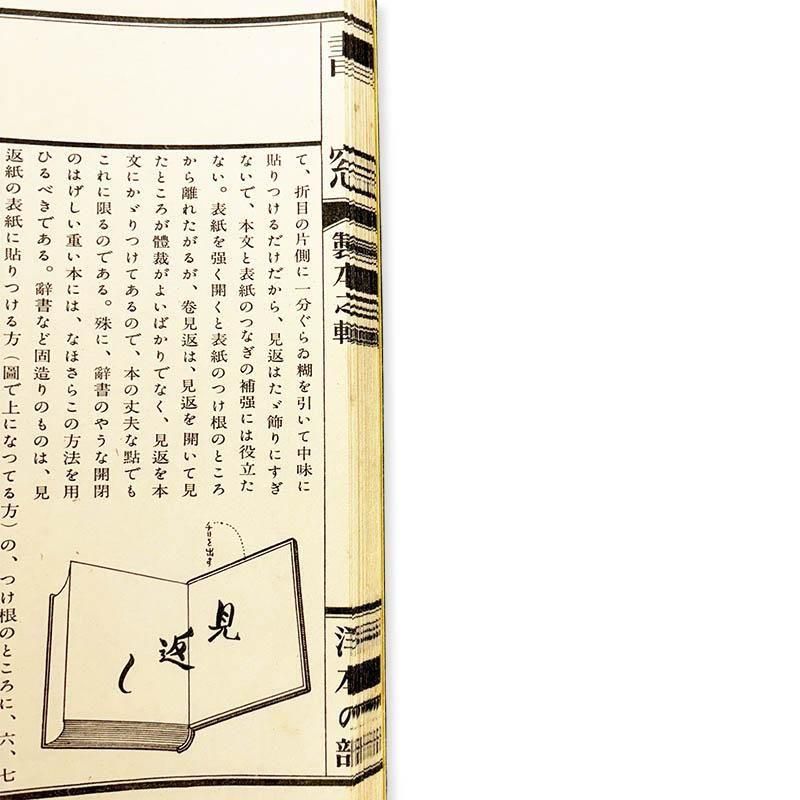 書窓
製本之輯
洋本の部
て、折目の片側に一分ぐらゐ糊を引いて中味に
貼りつけるだけだから、見返はたゞ飾りにすぎ
ないで、本文と表紙のつなぎの補强には役立た
ない。表紙を强く開くと表紙のつけ根のところ
から離れたがるが、卷見返は、見返を開いて見
たところが體裁がよいばかりでなく、見返を本
文にかゞりつけてあるので、本の丈夫な點でも
これに限るのである。殊に、辭書のやうな開閉
のはげしい重い本には、なほさらこの方法を用
ひるべきである。辭書など固造りのものは、見
返紙の表紙に貼りつける方（圖で上になつてる方）の、つけ根のところに、六、七
チリを出す
見返し